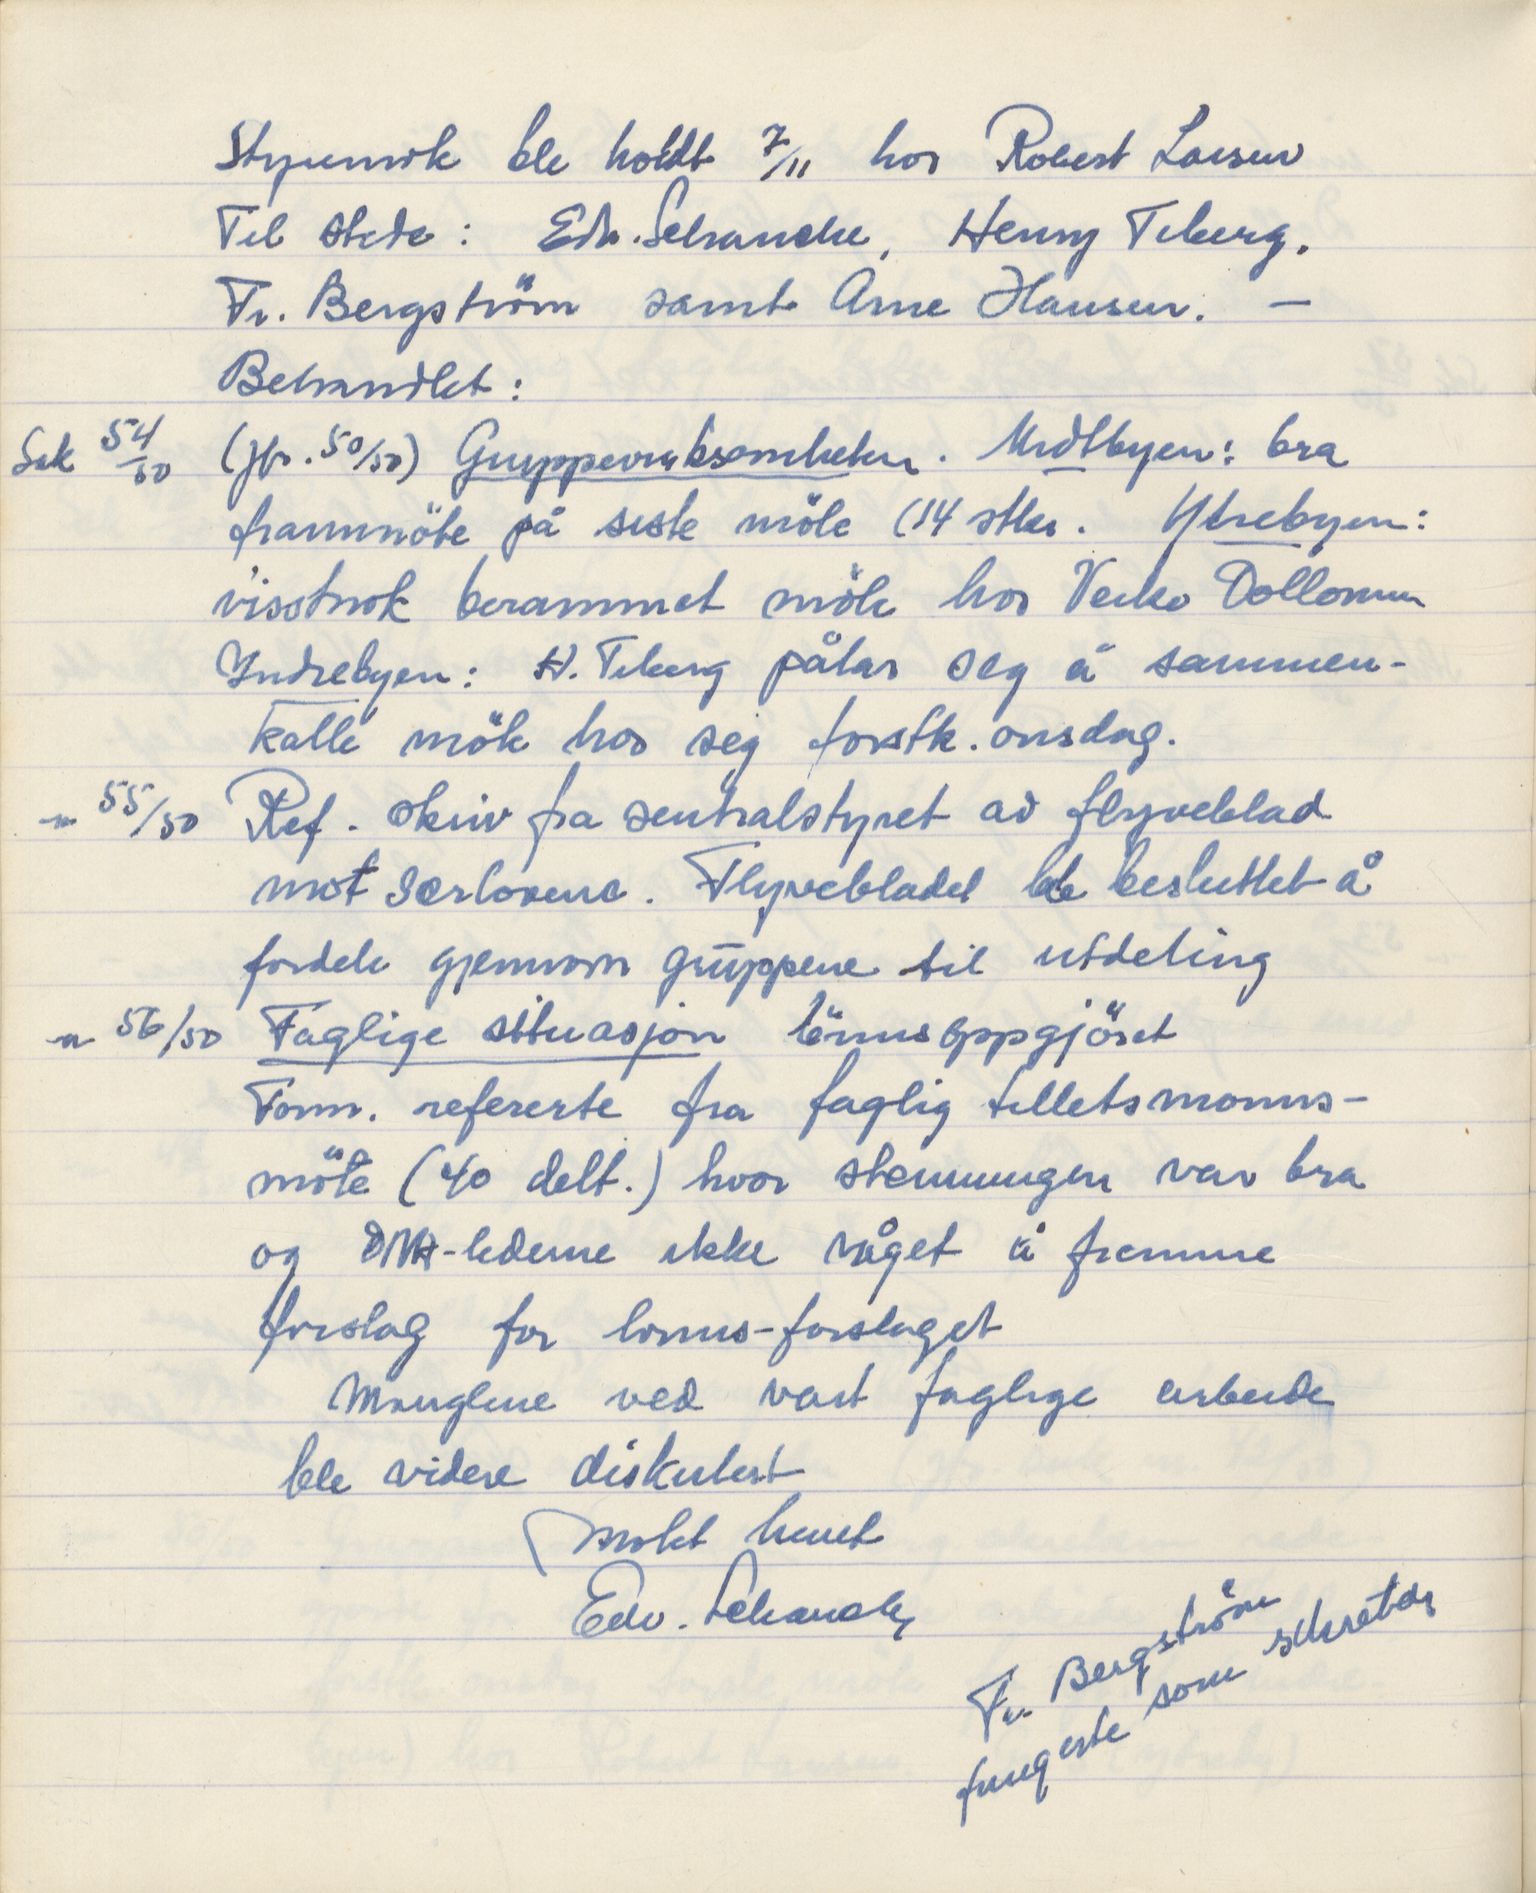 Styremøte ble holdt 7/11 hos Robert Larsen
Til stede: Edv. Schancke, Henny Tiberg.
Fr. Bergström samt Arne Hansen. —
Behandlet:
Sak 54/50 (jfr. 50/50) Gruppevirksomheten. Midtbyen: bra
frammöte på siste möte (14 stkr. Ytrebyen:
visstnok berammet möte hos
Indrebyen: H. Tiberg påtar seg å sammen-
kalle möte hos seg förstk. onsdag.
" 55/50 Ref. skriv fra sentralstyret ad flyveblad
mot særlovene. Flyvebladet ble besluttet å
fordele gjennom gruppene til utdeling
" 56/50 Faglige situasjon lönnsoppgjöret
Form. refererte fra faglig tillitsmanns-
möte (40 delt.) hvor stemningen var bra
og DNA-lederne ikke våget å fremme
forslag for bonus-forslaget
Manglene ved vart faglige arbeide
ble videre diskutert
Møtet hevet
Edv. Schancke
Fr. Bergström
fungerte som sekretær